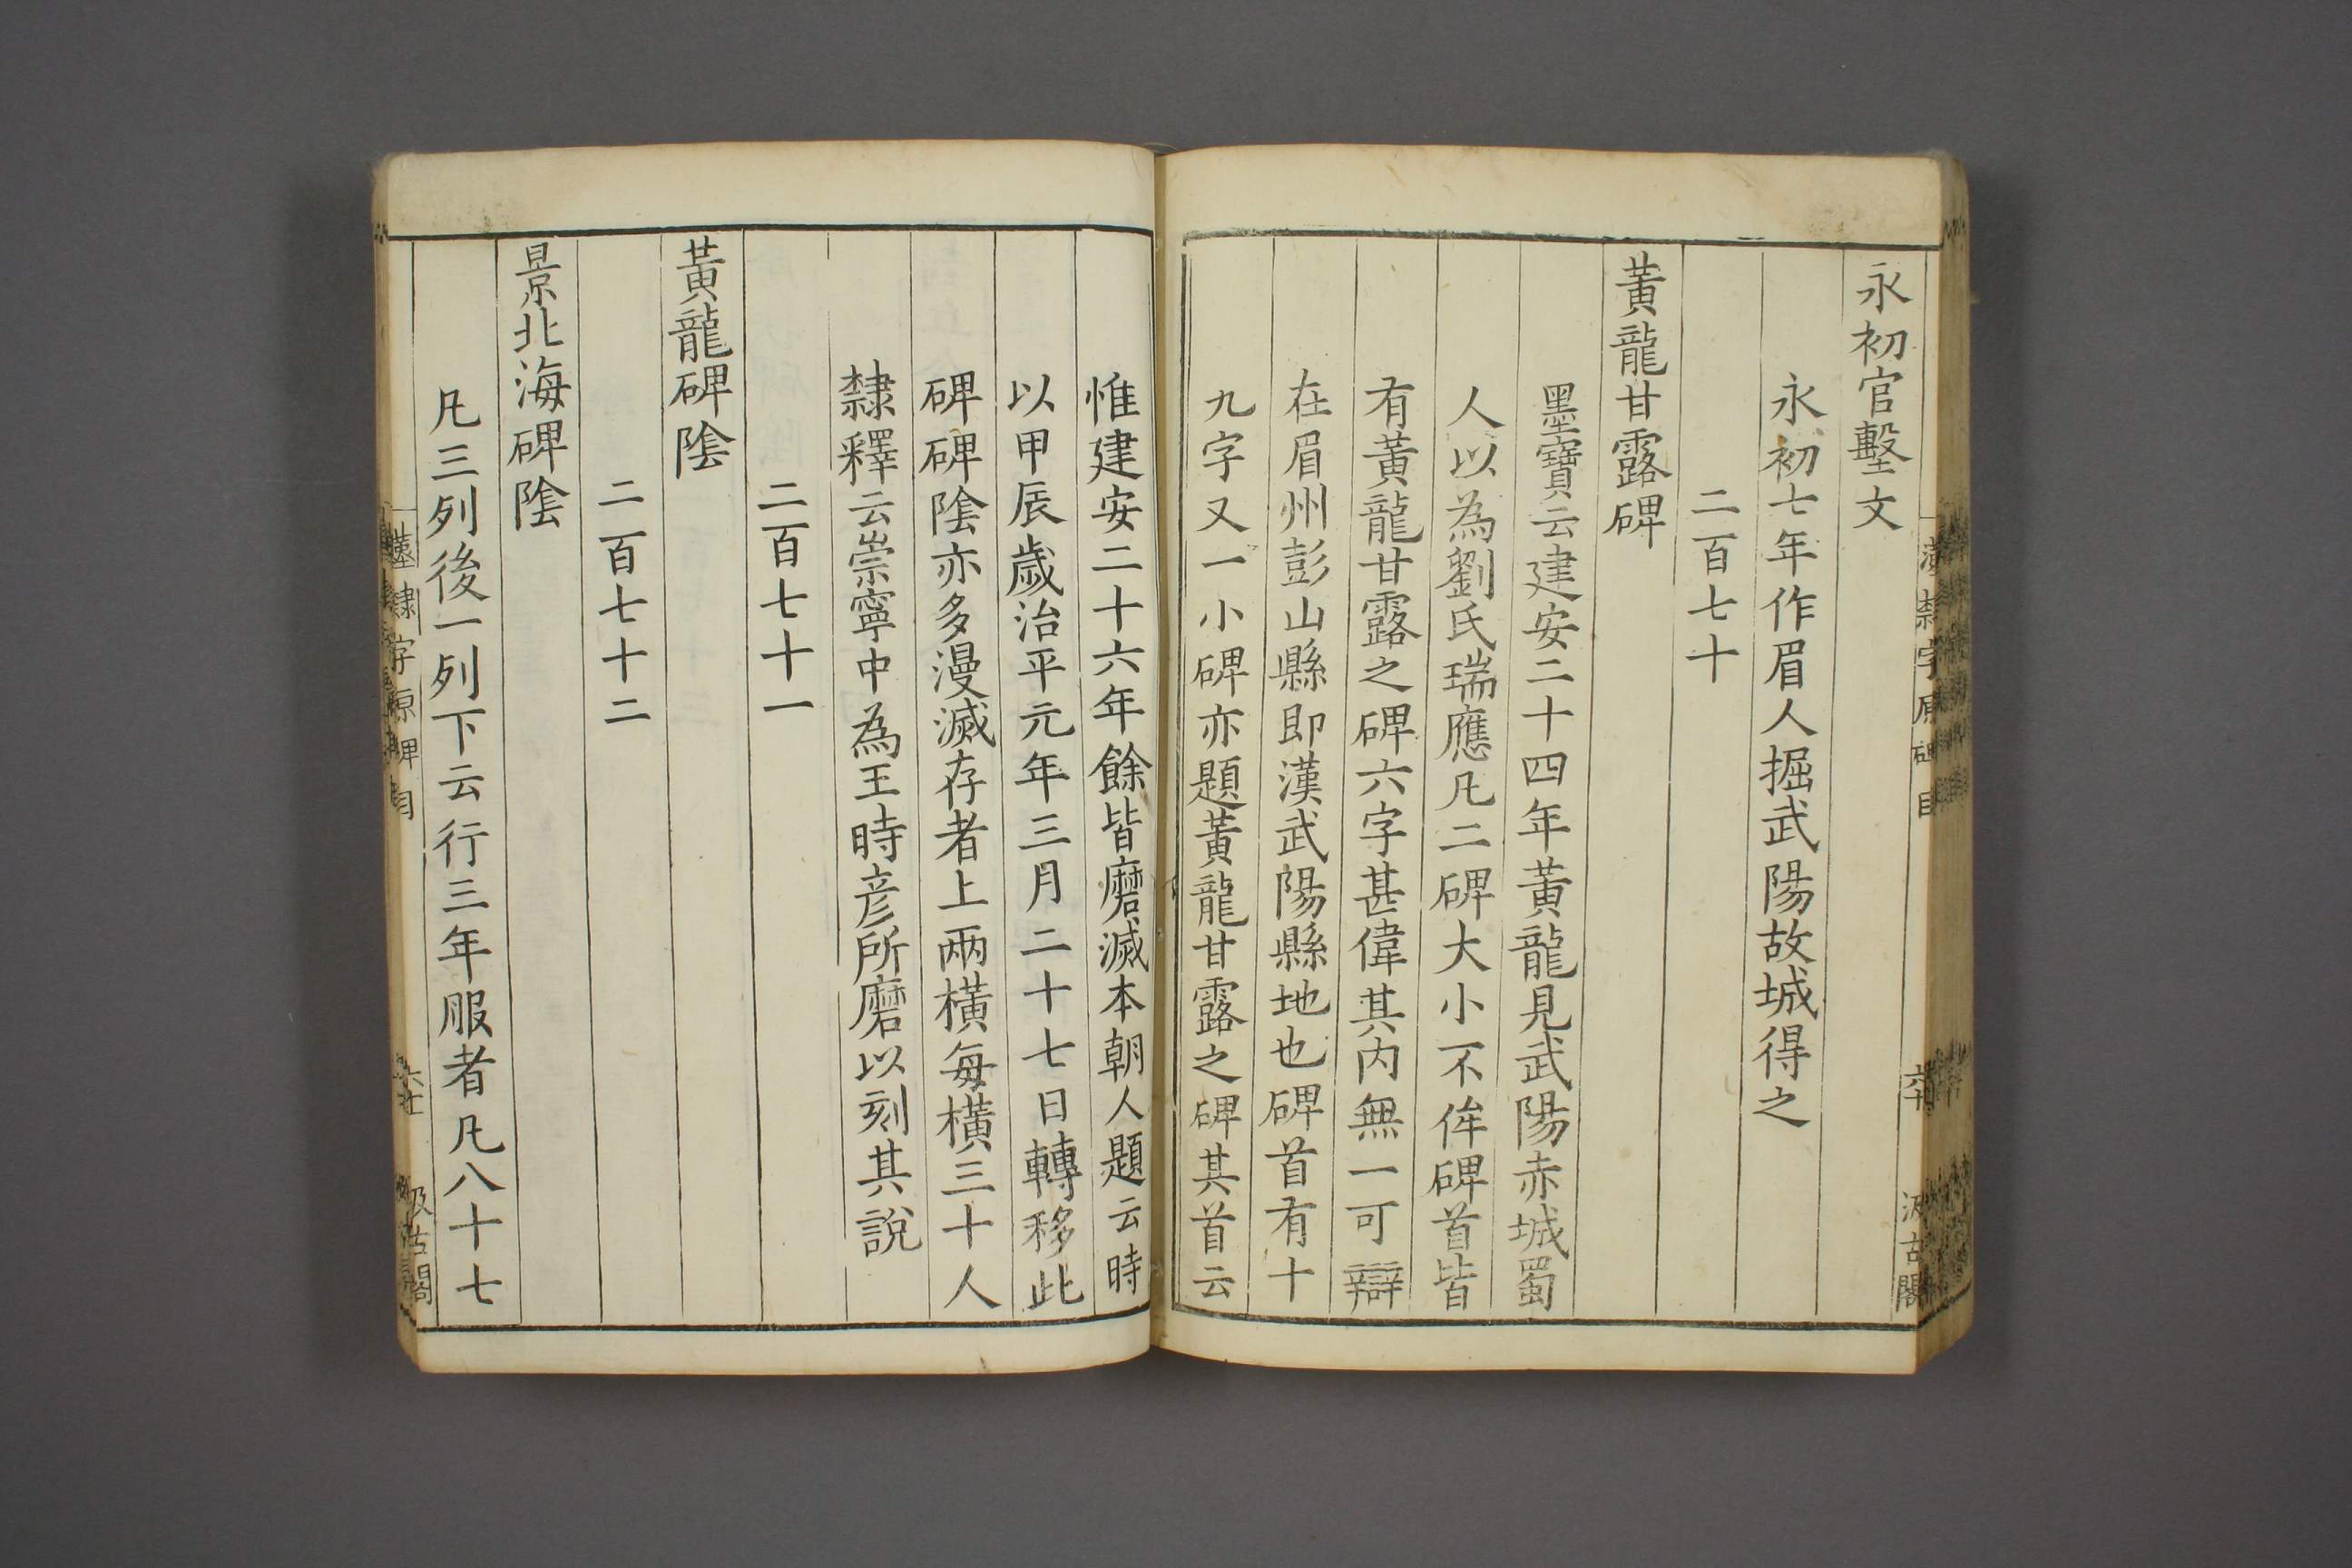 永初官墼文
永初七年作眉人掘武陽故城得之
二百七十
黃龍甘露碑
墨寶云建安二十四年黃龍見武陽赤城蜀
人以為劉氏瑞應凡二碑大小不侔碑首皆
有黃龍甘露之碑六字甚偉其内無一可辯
在眉州彭山縣即漢武陽縣地也碑首有十
九字又一小碑亦題黃龍甘露之碑其首云
惟建安二十六年餘皆磨滅本朝人題云時
以甲辰歲治平元年三月二十七日轉移此
碑碑陰亦多漫滅存者上兩橫每橫三十人
隸釋云崇寧中為王時彦所磨以刻其說
二百七十一
黃龍碑陰
二百七十二
景北海碑陰
凡三列後一列下云行三年服者凡八十七
漢隸字原碑目
汲古閣